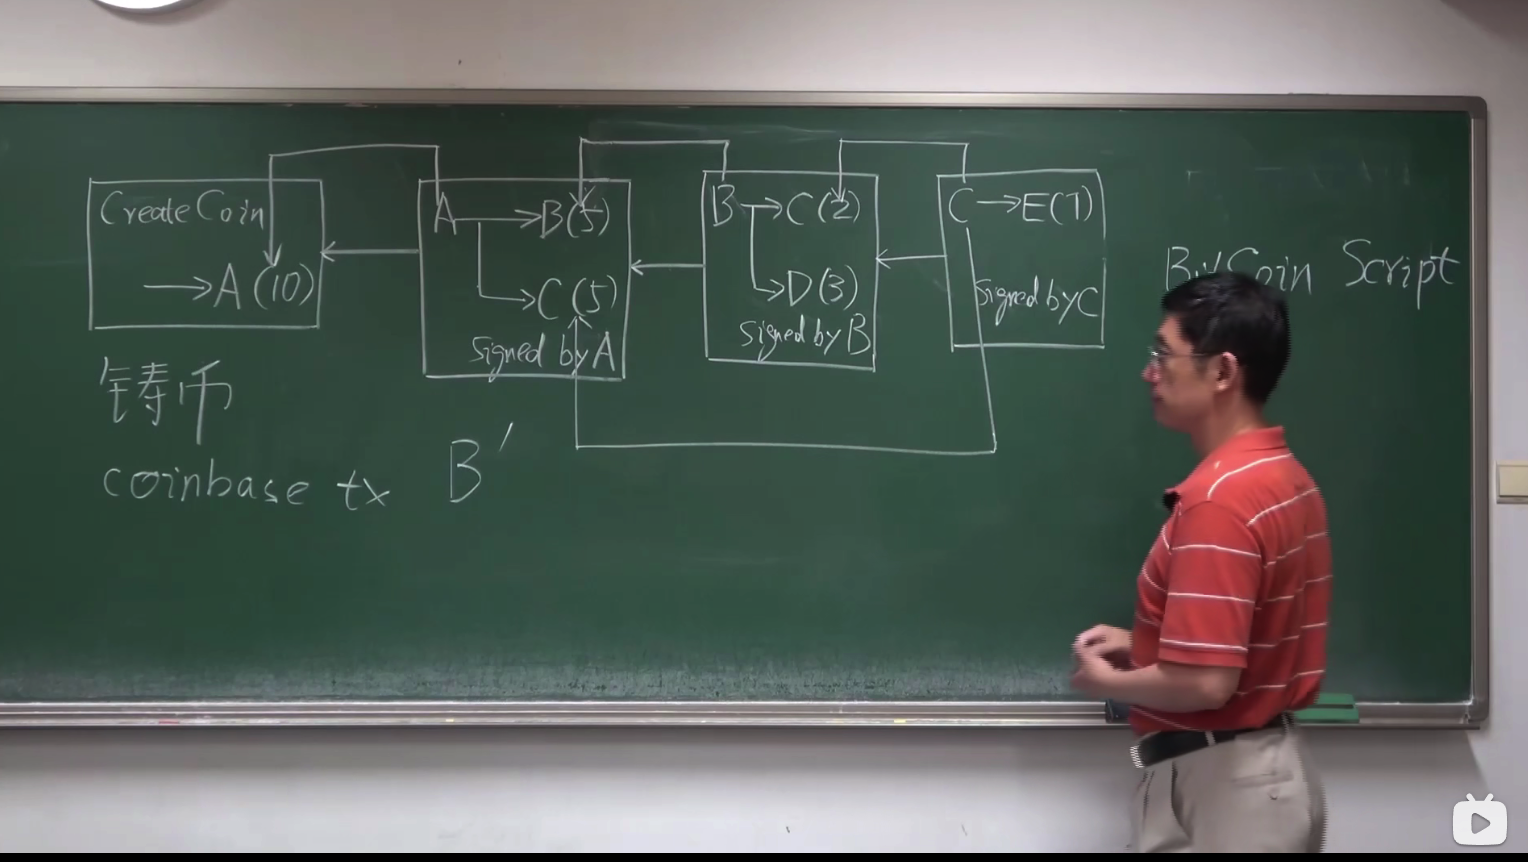 CreateCoin
→A(10)
A→B(5)
→C(5)
signed by A
B→C(2)
→D(3)
signed by B
C→E(7)
signed by C
BitCoin Script
铸币
coinbase tx
B′